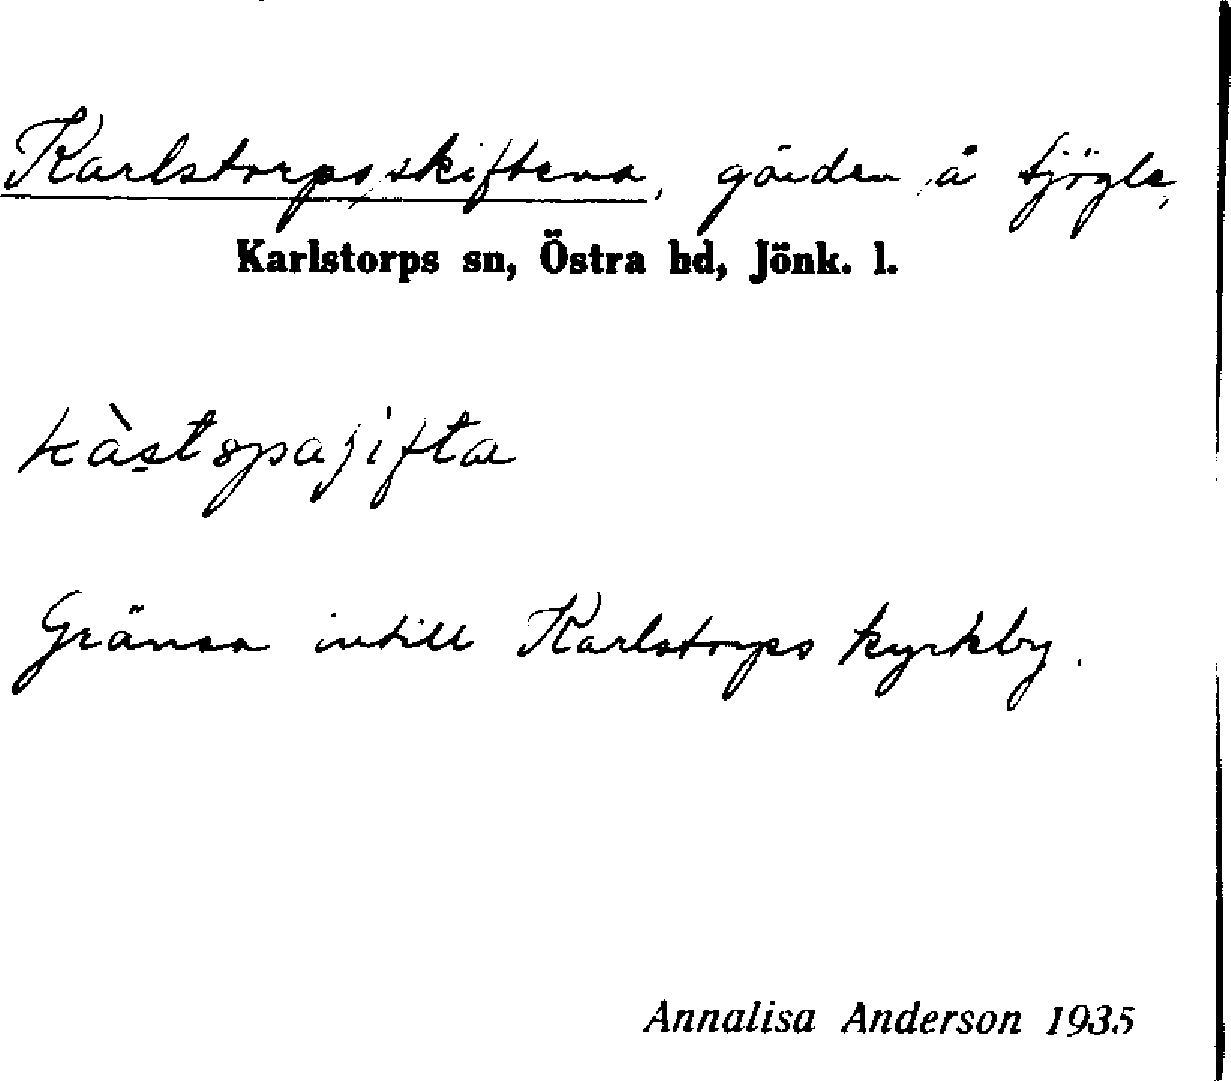 Karlstorpsskiftena, gärden å Fjögle,
Karlstorps sn, Östra hd, Jönk. l.
kàstopajifta
Gränsa intill Karlstorps kyrkby.
Annalisa Anderson 1935